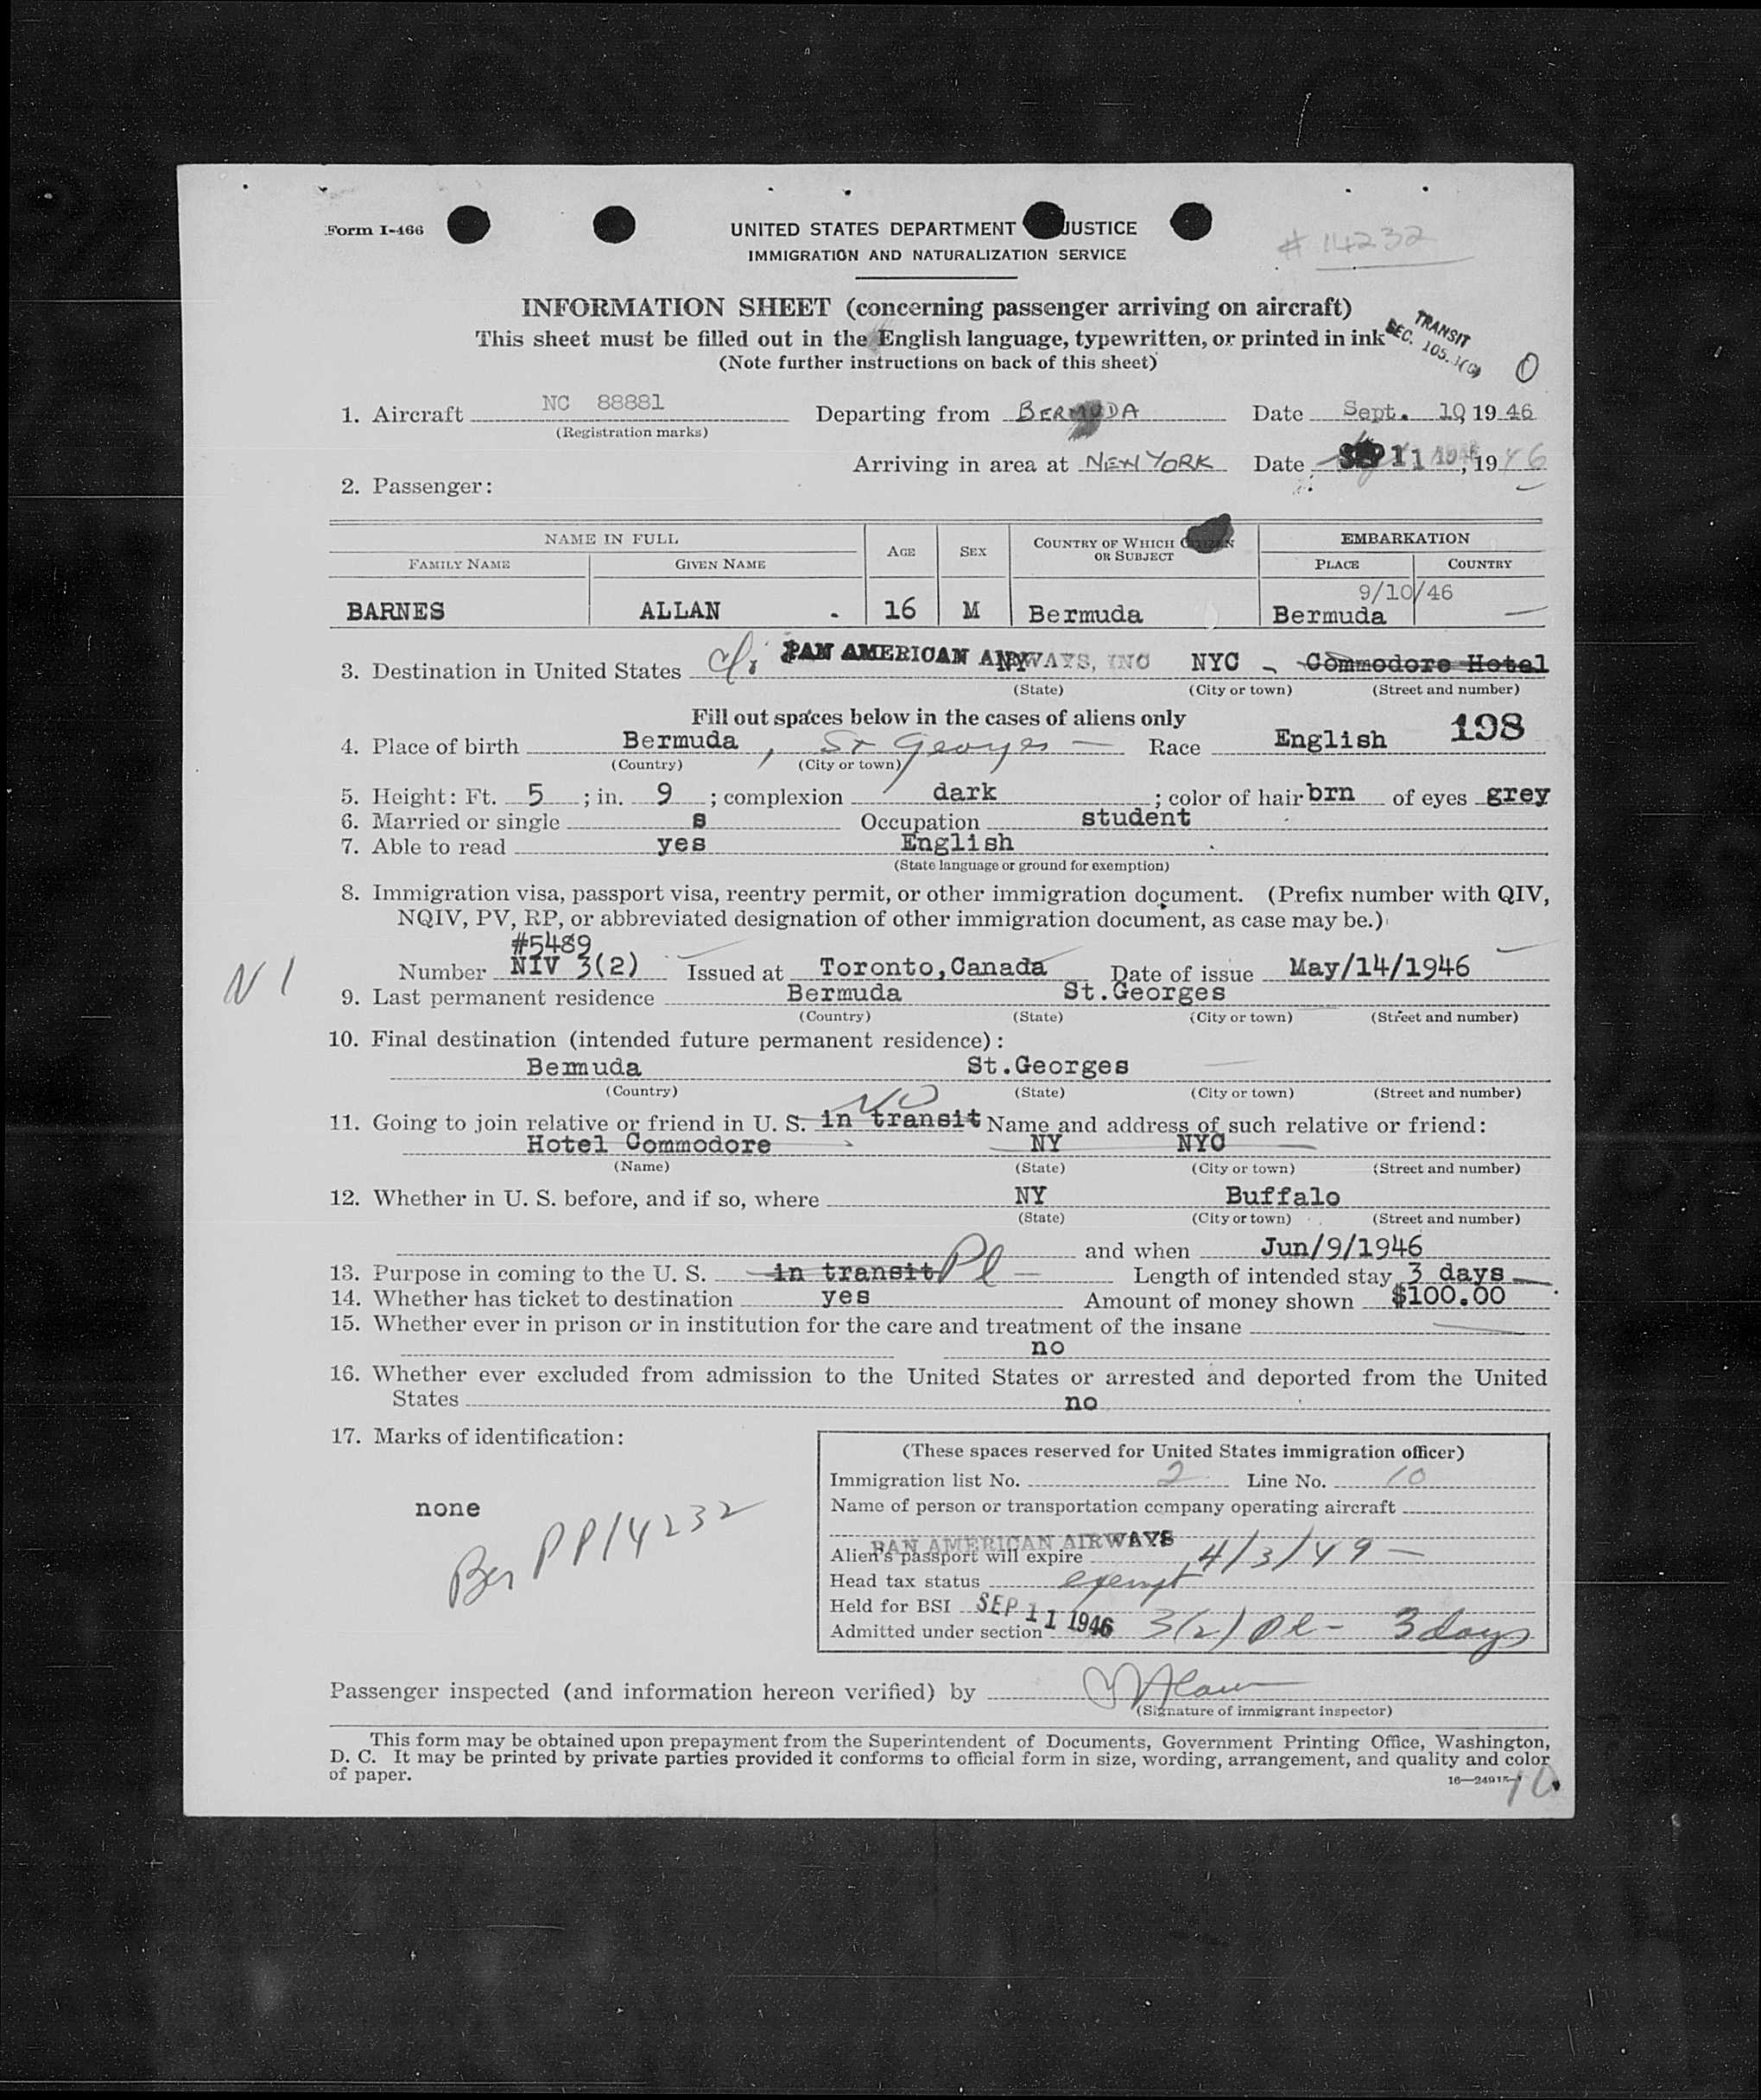 Form I-466
UNITED STATES DEPARTMENT JUSTICE
IMMIGRATION AND NATURALIZATION SERVICE
# 14232
INFORMATION SHEET (concerning passenger arriving on aircraft)
This sheet must be filled out in the English language, typewritten, or printed in ink
(Note further instructions on back of this sheet)
TRANSIT
SEC. 105.
0
1. Aircraft NC 88881 Departing from BERMUDA Date Sept. 10, 19 46
(Registration marks)
Arriving in area at NEW YORK Date SEP 11 , 19 46
2. Passenger:
NAME IN FULL AGE SEX COUNTRY OF WHICH CITIZEN OR SUBJECT EMBARKATION
FAMILY NAME GIVEN NAME PLACE COUNTRY
9/10/46
BARNES ALLAN 16 M Bermuda Bermuda
3. Destination in United States PAN AMERICAN AIRWAYS, INC NY NYC - Commodore Hotel
(State) (City or town) (Street and number)
Fill out spaces below in the cases of aliens only
198
4. Place of birth Bermuda, St Georges Race English
(Country) (City or town)
5. Height: Ft. 5 ; in. 9 ; complexion dark ; color of hair brn of eyes grey
6. Married or single s Occupation student
7. Able to read yes English
(State language or ground for exemption)
8. Immigration visa, passport visa, reentry permit, or other immigration document. (Prefix number with QIV,
NQIV, PV, RP, or abbreviated designation of other immigration document, as case may be.)
#5489
N I
Number NIV 3(2) Issued at Toronto,Canada Date of issue May/14/1946
9. Last permanent residence Bermuda St.Georges
(Country) (State) (City or town) (Street and number)
10. Final destination (intended future permanent residence):
Bemuda St.Georges
(Country) (State) (City or town) (Street and number)
NO
11. Going to join relative or friend in U. S. in transit Name and address of such relative or friend:
Hotel Commodore NY NYC
(Name) (State) (City or town) (Street and number)
12. Whether in U. S. before, and if so, where NY Buffalo
(State) (City or town) (Street and number)
and when Jun/9/1946
13. Purpose in coming to the U. S. in transit Pl Length of intended stay 3 days
14. Whether has ticket to destination yes Amount of money shown $100.00
15. Whether ever in prison or in institution for the care and treatment of the insane
no
16. Whether ever excluded from admission to the United States or arrested and deported from the United
States no
17. Marks of identification:
none
Ber PP14232
(These spaces reserved for United States immigration officer)
Immigration list No. 2 Line No. 10
Name of person or transportation company operating aircraft
PAN AMERICAN AIRWAYS
Alien's passport will expire 4/3/49
Head tax status exempt
Held for BSI SEP 11 1946
Admitted under section 3(2) Pl - 3 days
Passenger inspected (and information hereon verified) by
(Signature of immigrant inspector)
This form may be obtained upon prepayment from the Superintendent of Documents, Government Printing Office, Washington,
D. C. It may be printed by private parties provided it conforms to official form in size, wording, arrangement, and quality and color
of paper.
10